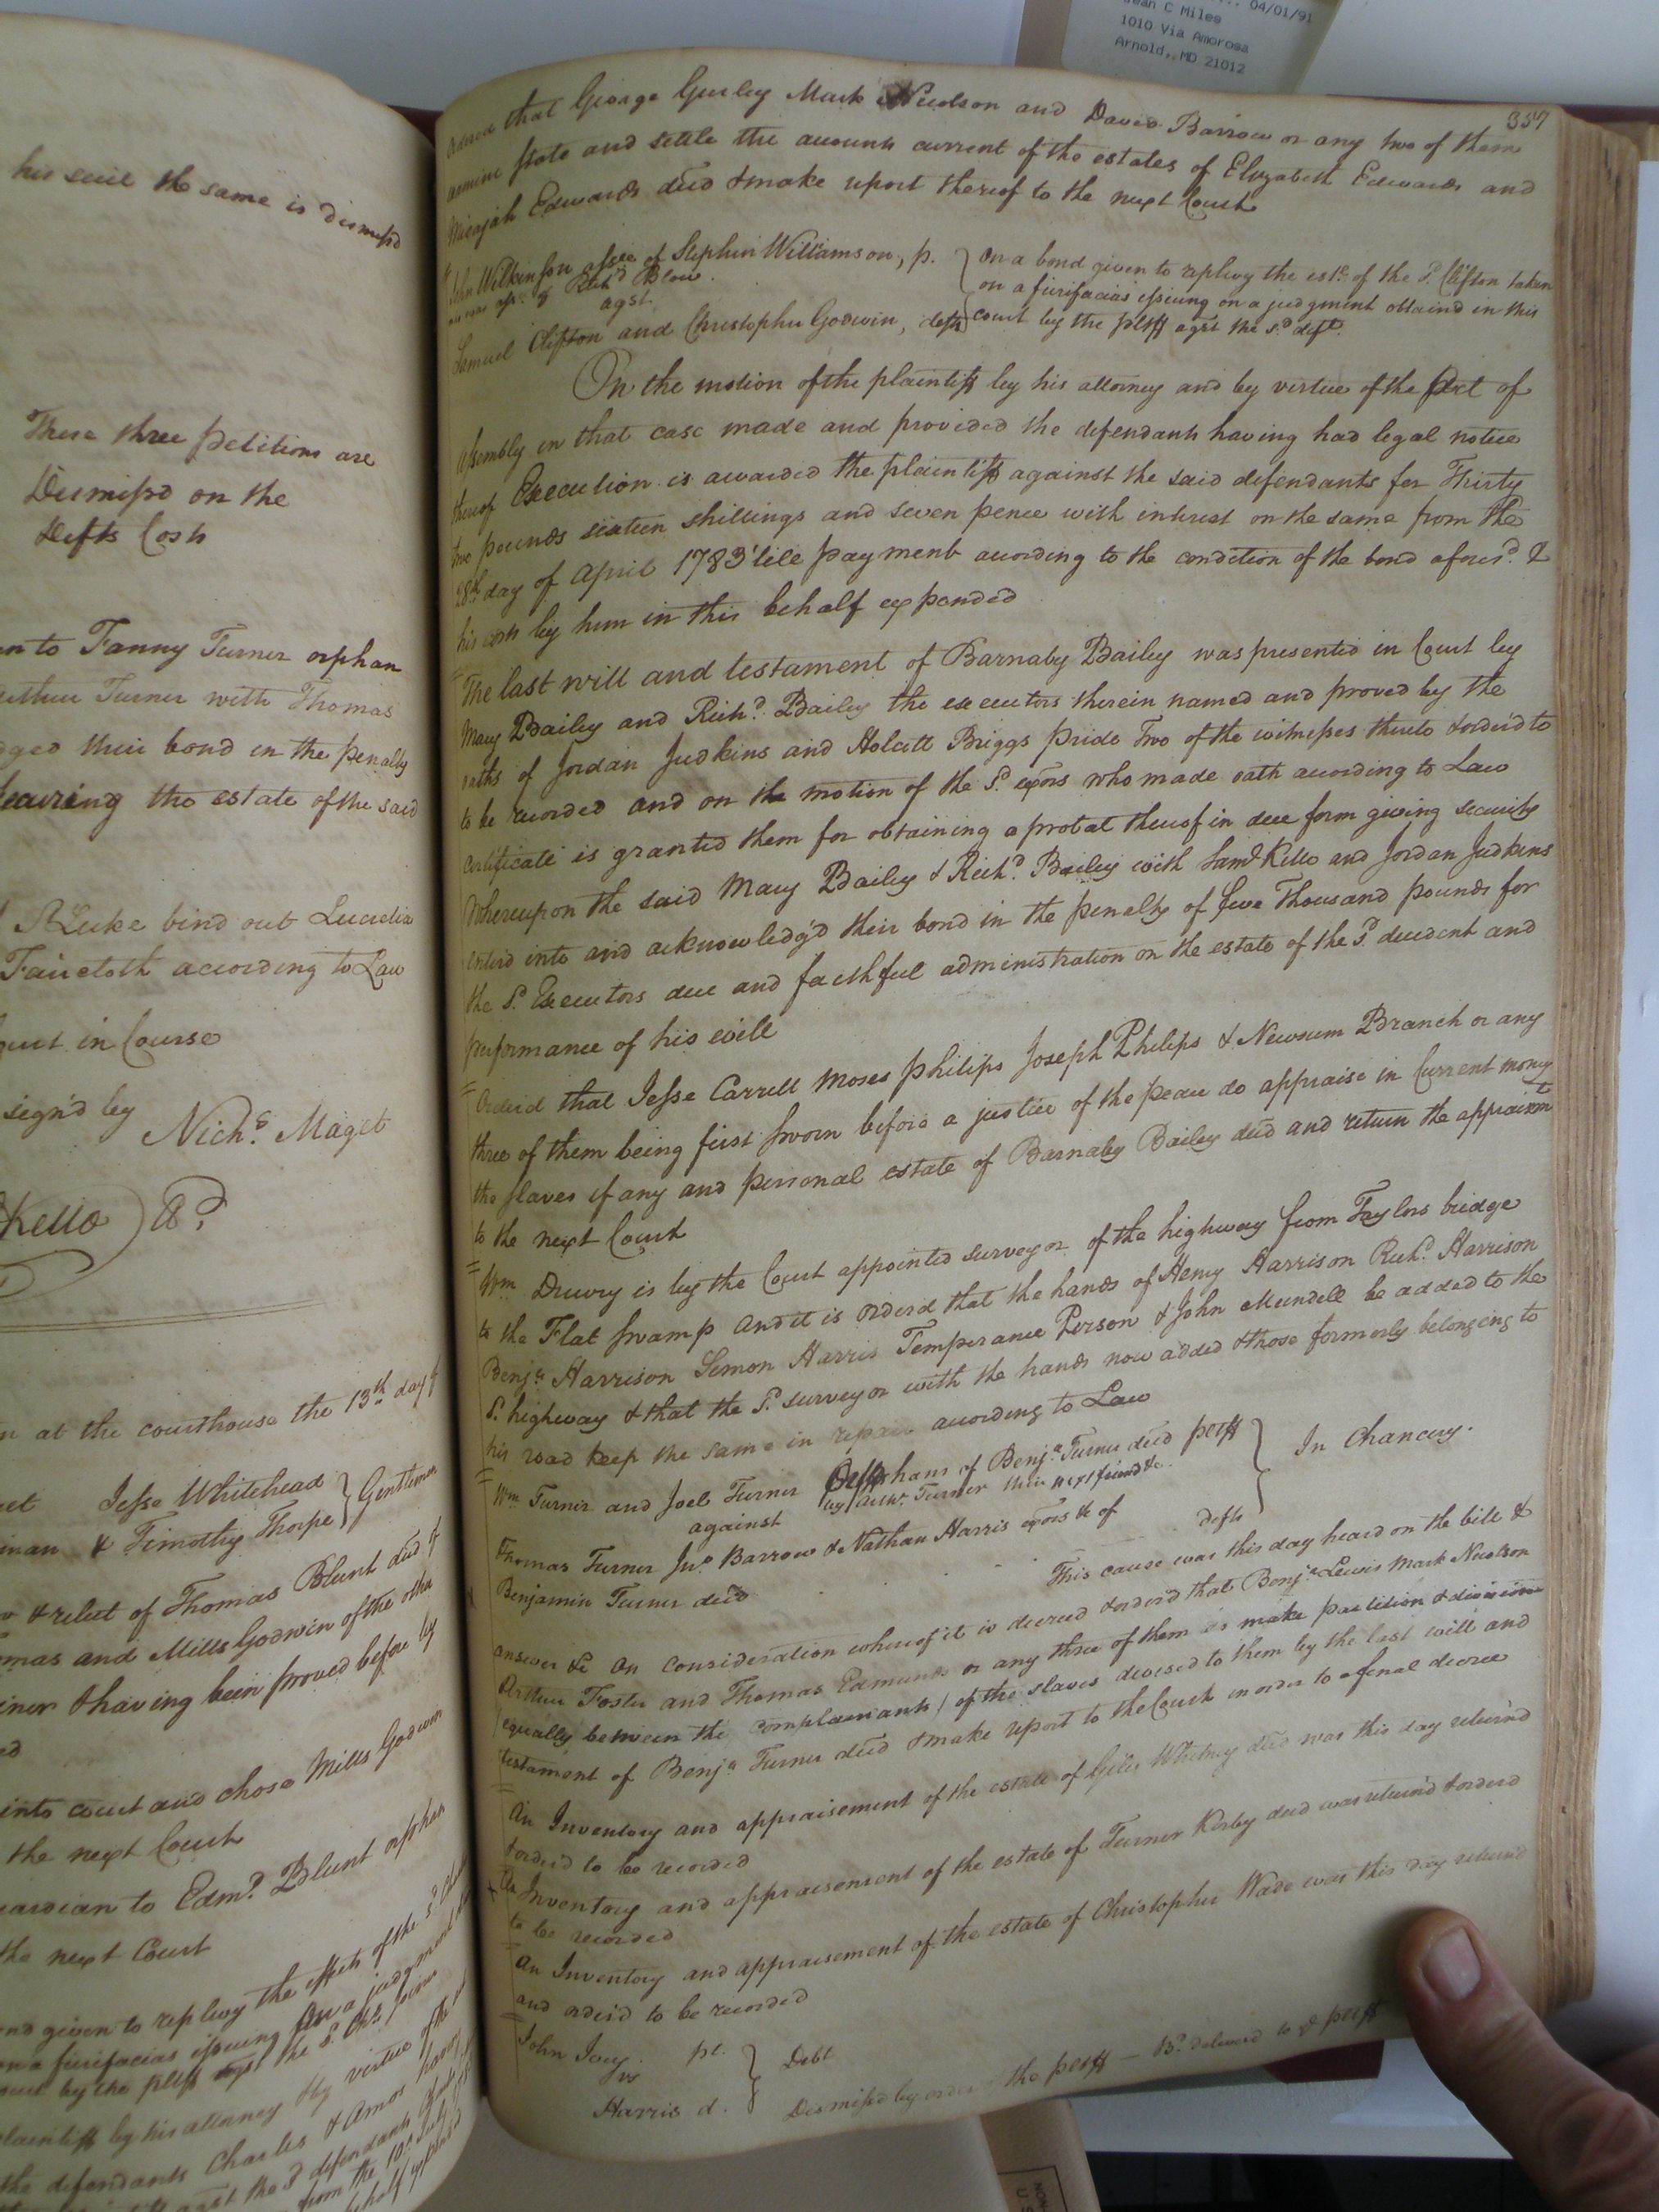 his suit the same is dismissd
These three petitions are
Dismissd on the
Defts Costs
to Fanny Turner orphan
Arthur Turner with Thomas
their bond in the penalty
securing the estate of the said
bind out Lucretia
Faircloth according to Law
Court in Course
sign'd by
Nichs. Maget
Kello
at the courthouse the 13th day of
Jesse Whitehead
& Timothy Thorpe } Gentlemen
& relict of Thomas Blunt decd of
and Mills Godwin of the other
& having been proved before by
into court and chose Mills Godwin
the next Court
guardian to Edmd. Blunt orphan
the next Court
given to replevy the effects of the sd.
on a fierifacias issuing on a judgment
court by the pltff agst the sd. Chs.
plaintiff by his attorney & by virtue of the
the defendants Charles & Amos having
agst the sd defendants
from the 10th July
04/01/91
Jean C Miles
1010 Via Amorosa
Arnold, MD 21012
357
Ordered that George Gurley Mark Newdson and David Barrow or any two of them
examine state and settle the accounts current of the estates of Elizabeth Edwards and
Micajah Edwards decd & make report thereof to the next Court
John Wilkinson assee of Stephen Williamson, p. } On a bond given to replevy the este. of the sd. Clifton taken
who was asse. of Richd Blow. on a fierifacias issuing on a judgment obtaind in this
agst
Samuel Clifton and Christopher Godwin, defts } court by the pltff agst the sd deft.
On the motion of the plaintiff by his attorney and by virtue of the Act of
Assembly in that case made and provided the defendants having had legal notice
thereof Execution is awarded the plaintiff against the said defendants for Thirty
two pounds sixteen shillings and seven pence with interest on the same from the
28th day of April 1783 'till payment according to the condition of the bond aforesd. &
his costs by him in this behalf expended
The last will and testament of Barnaby Bailey was presented in Court by
Mary Bailey and Richd. Bailey the executors therein named and proved by the
oaths of Jordan Judkins and Holcutt Briggs Pride Two of the witnesses thereto & orderd to
to be recorded and on the motion of the sd. exors who made oath according to Law
certificate is granted them for obtaining a probat thereof in due form giving security
Whereupon the said Mary Bailey & Richd. Bailey with Saml. Kello and Jordan Judkins
enterd into and acknowledg'd their bond in the penalty of five Thousand pounds for
the sd. Executors due and faithful administration on the estate of the sd. decedent and
performance of his will
Orderd that Jesse Carrell Moses Philips Joseph Philips & Newsum Branch or any
three of them being first sworn before a justice of the peace do appraise in Current money
the slaves if any and personal estate of Barnaby Bailey decd and return the appraismt
to the next Court
Wm Drury is by the Court appointed surveyor of the highway from Taylors bridge
to the Flat swamp And it is orderd that the hands of Henry Harrison Richd. Harrison
Benja Harrison Simon Harris Temperance Person & John Mundell be added to the
sd. highway & that the sd. surveyor with the hands now added & those formerly belonging to
his road keep the same in repair according to Law
Wm Turner and Joel Turner Orphans of Benja. Turner decd pltff
against by Arthr. Turner their next friend &c. } In Chancery.
Thomas Turner Jno. Barrow & Nathan Harris exors &c of defts
Benjamin Turner decd This cause was this day heard on the bill &
answer &c On Consideration whereof it is decreed & orderd that Benja. Lewis Mark Newdson
Arthur Foster and Thomas Edmunds or any three of them do make partition & division
(equally between the complainants) of the slaves devised to them by the last will and
testament of Benja Turner decd & make report to the Court in order to a final decree
An Inventory and appraisement of the estate of Giles Whitney decd was this day return'd
& orderd to be recorded
An Inventory and appraisement of the estate of Turner Kirby decd was return'd & orderd
to be recorded
An Inventory and appraisement of the estate of Christopher Wade was this day return'd
and order'd to be recorded
John Ivey pl. } Debt
vs
Harris d. Dismissd by order of the pltff — Bd. deliverd to ye pltff